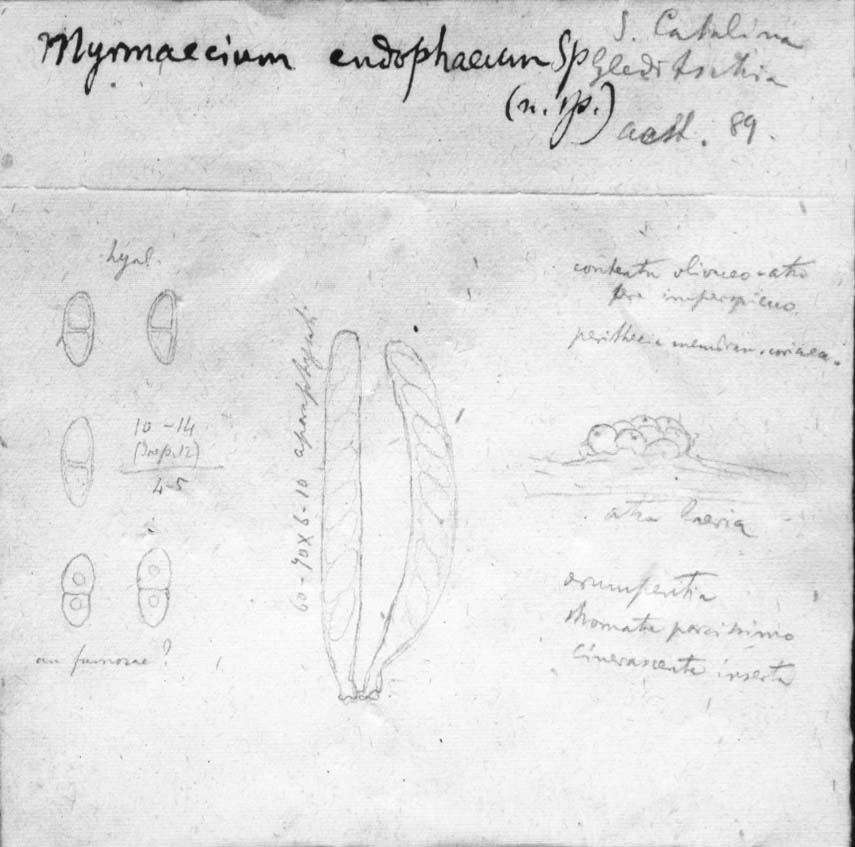 Myrmaecium endophaeum Sp
(n. sp.)
S. Catalina
Gleditschia
aest. 89.
hyal.
10-14
(saep. 12)
4-5
an fumosae?
60-90 X 8-10 aparaphysati
contextu olivaceo-atro
fere imperspicuo.
perithecia membran. coriacea.
atra laevia
erumpentia
stromate parcissimo
cinerascente inserta